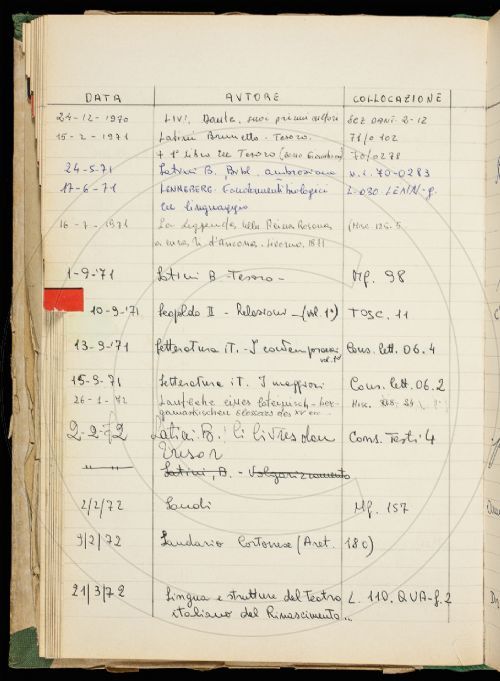 DATA AVTORE COLLOCAZIONE
24-12-1970 LIVI, Dante, suoi primi cultori SEZ DANT. 2-12
15-2-1971 Latini Brunetto. Tesoro. 71/0102
+ 1° libro del Tesoro 70/0278
24-5-71 Latini B. Bibl. ambrosiana v.i. 70-0283
17-6-71 LENNEBERG Fondamenti biologici L-030 LENN-f.
del linguaggio
16-7-1971 La Leggenda della Reina Rosana (Misc 125.5
a cura di d'Ancona. Livorno, 1871
1-9-71 Latini B - Tesoro - Mf. 98
10-9-71 Leopoldo II - Relazioni - (vol. 1°) TOSC. 11
13-9-71 Letteratura it. - I contemporanei Cons. lett. 06.4
vol. 1°
15-9-71 Letteratura it. I maggiori Cons. lett. 06.2
26-1-72 eines lateinisch-
Glossars des XV Misc.
2-2-72 Latini B. li livres dou Cons. Testi 4
Tresor
" " Latini, B. - Volgarizzamento
2/2/72 Laudi Mf. 157
9/2/72 Laudario Cortonese (Aret. 180)
21/3/72 Lingua e strutture del Teatro L. 110. QUA-f. 2
italiano del Rinascimento..